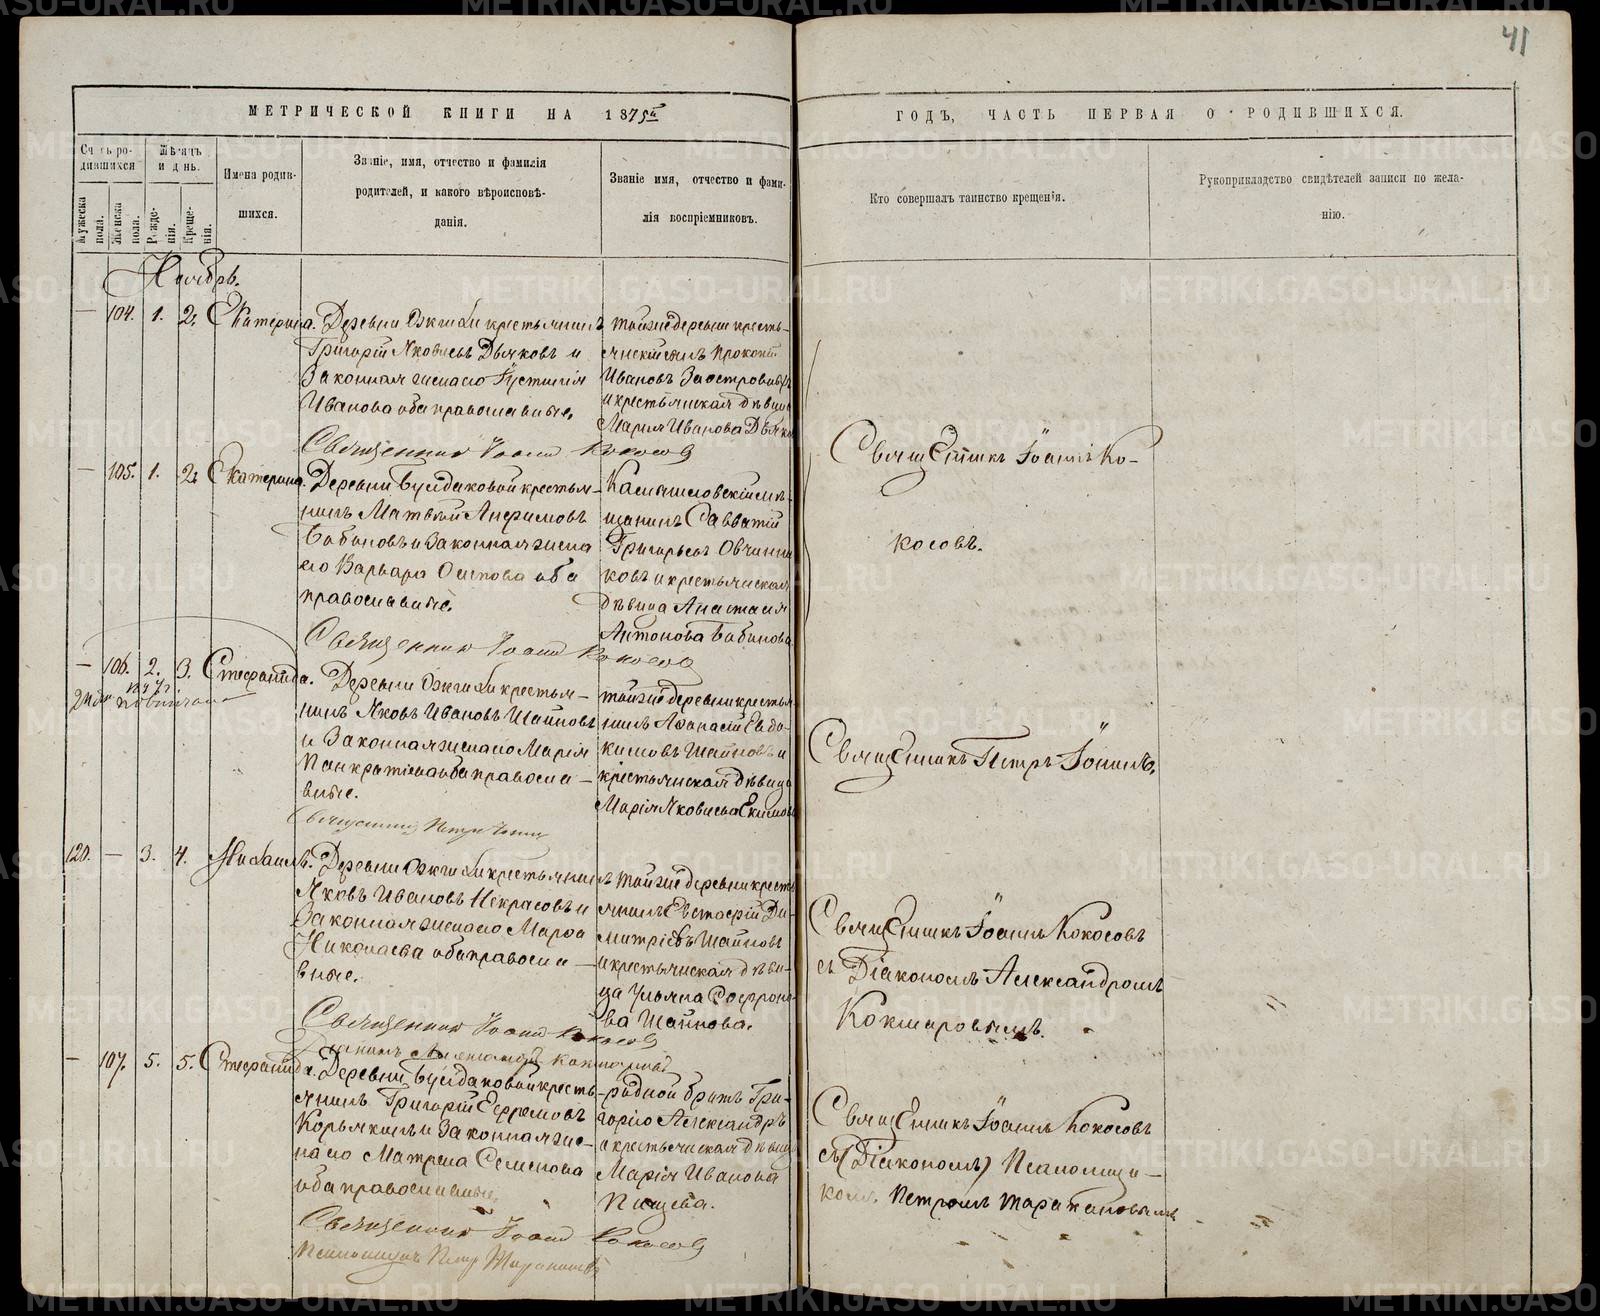 41
МЕТРИЧЕСКОЙ КНИГИ НА 1875й
ГОДЪ, ЧАСТЬ ПЕРВАЯ О РОДИВШИХСЯ.
Счетъ родившихся
Мужеска пола.
Женска пола.
Мѣсяцъ и день.
Рожденія.
Крещенія.
Имена родившихся.
Званіе, имя, отчество и фамилія
родителей, и какого вѣроисповѣ-
данія.
Званіе имя, отчество и фами-
лія воспріемниковъ.
Кто совершалъ таинство крещенія.
Рукоприкладство свидѣтелей записи по жела-
нію.
Ноябрь.
— 104. 1. 2. Екатерина.
Деревни крестьянинъ
Григорій Яковлевъ Дьячковъ и
Законная жена его Іустинія
Иванова оба православные.
Священникъ Іоаннъ Кокосовъ
тойже деревни кресть-
янскій сынъ Прокопій
Ивановъ Заостровныхъ
и крестьянская дѣвица
Марія Иванова
Священникъ Іоаннъ Ко-
косовъ.
— 105. 1. 2. Екатерина.
Деревни Булдаковой крестья-
нинъ Матвѣй Анфимовъ
Бабиновъ и Законная жена
его Варвара Осипова оба
православные.
Священникъ Іоаннъ Кокосовъ
Камышловскій мѣ-
щанинъ Савватій
Григорьевъ Овчинни
ковъ и крестьянская
дѣвица Анастасія
Антонова Бабинова
— 106. 2. 3. Стефанида.
Деревни крестья-
нинъ Яковъ Ивановъ Шаиновъ
и Законная жена его Марія
Панкратіева оба правосла-
вные.
Священникъ Петръ
тойже деревни крестья
нинъ Аѳанасій Евдо-
кимовъ Шаиновъ и
крестьянская дѣвица
Марія Яковлева Екимова
Священникъ Петръ
120. — 3. 4. Михаилъ.
Деревни крестьянинъ
Яковъ Ивановъ Некрасовъ и
Законная жена его Марѳа
Николаева оба правосла-
вные.
Священникъ Іоаннъ Кокосовъ
тойже деревни кресть
янинъ Евстафій Ди-
митріевъ Шаиновъ
и крестьянская дѣви-
ца Ульяна Софроно-
ва Шаинова.
Священникъ Іоаннъ Кокосовъ
съ Діакономъ Александромъ
Кокшаровымъ.
— 107. 5. 5. Стефанида.
Деревни Булдаковой кресть-
янинъ Григорій Ефремовъ
Корякинъ и Законная же-
на его Матрена Семенова
оба православные.
Священникъ Іоаннъ Кокосовъ
Псаломщикъ Петръ Таракановъ
родной братъ Гри-
горію Александръ
и крестьянская дѣвица
Марія Иванова
Пищева.
Священникъ Іоаннъ Кокосовъ
съ (Діакономъ) Псаломщи-
комъ. Петромъ Таракановымъ
METRIKI.GASO-URAL.RU